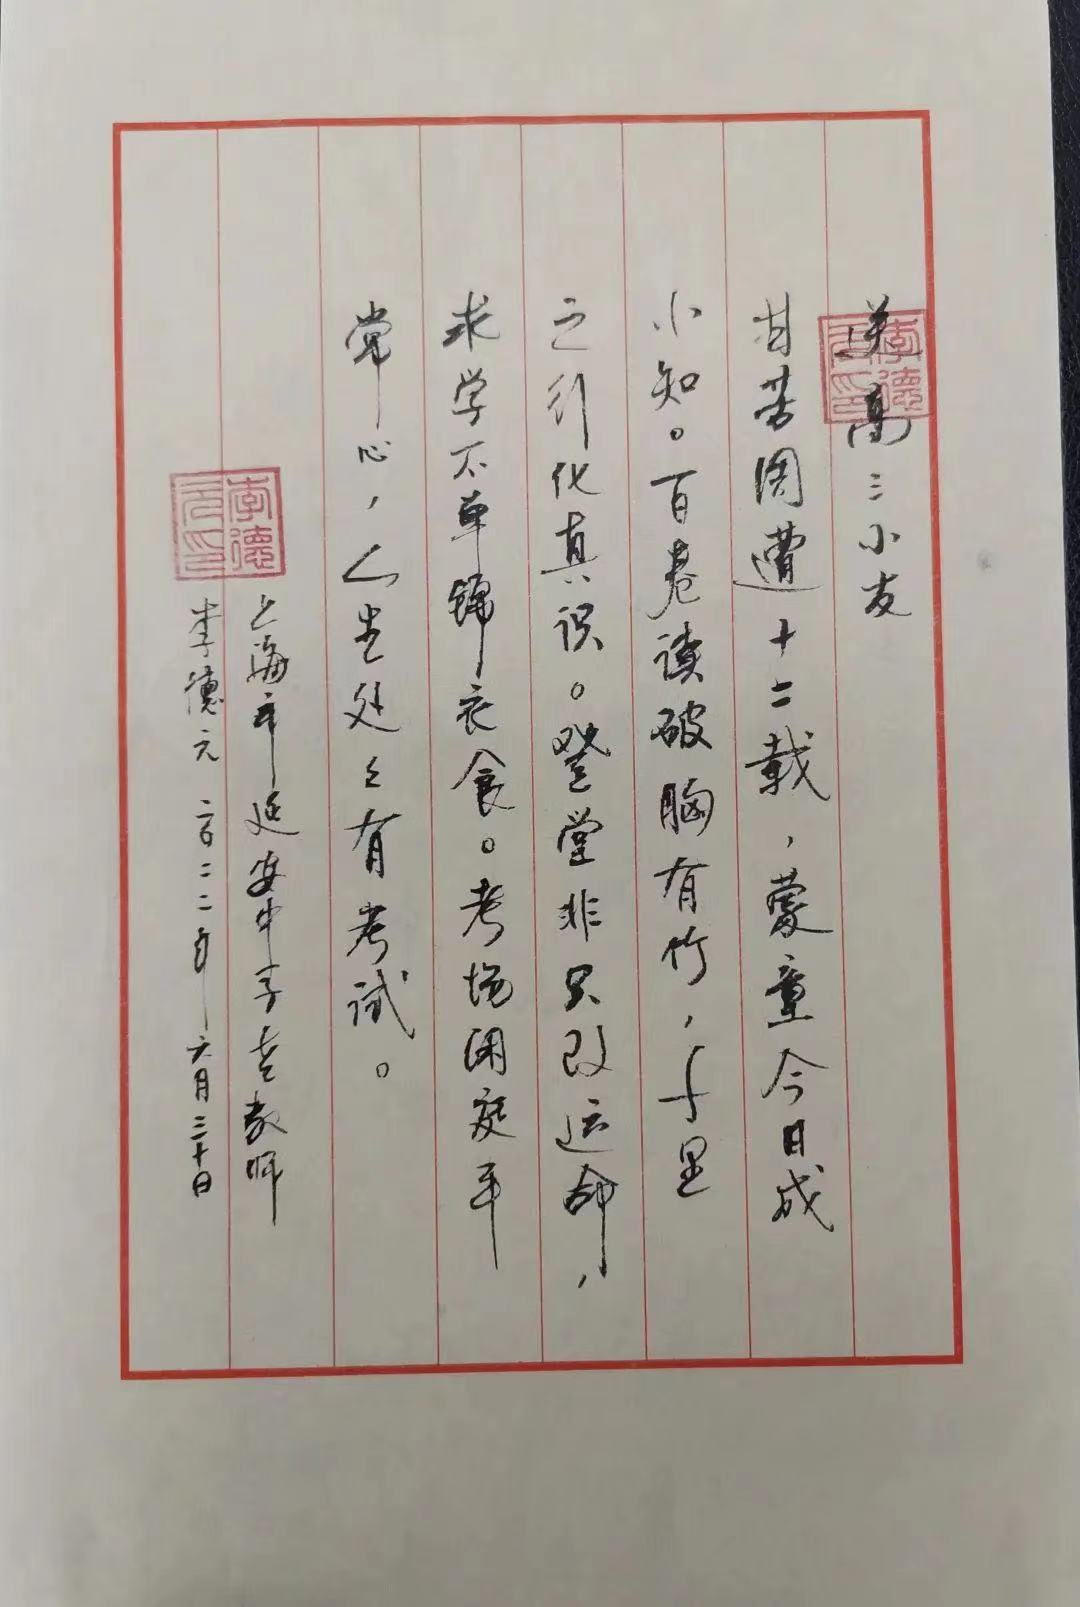 送高三小友
甘苦周遭十二载，蒙童今日成
小知。百卷读破胸有竹，千里
之行化真识。登堂非只改运命，
求学不单锦衣食。考场闲庭平
常心，人生处々有考试。
上海市延安中学老教师
李德元 二〇二二年六月三十日
李德元印
李德元印